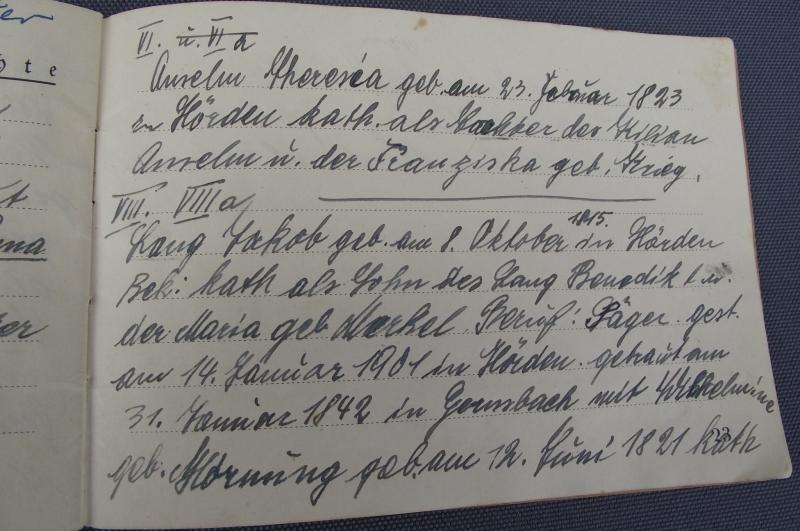 ö t e
VI. u. VI a
Anselm Theresia geb. am 23. Februar 1823
in Hörden kath. als Tochter des Kilian
Anselm u. der Franziska geb. Krieg.
VIII. VIIIa
1815.
Lang Jakob geb. am 8. Oktober in Hörden
Bek: kath als Sohn des Lang Benedikt u.
der Maria geb Merkel. Beruf: Säger. gest.
am 14. Januar 1901 in Hörden. getraut am
31. Januar 1842 in Gernsbach mit Wilhelmine
geb. Hornung geb. am 12. Juni 1821 kath
23